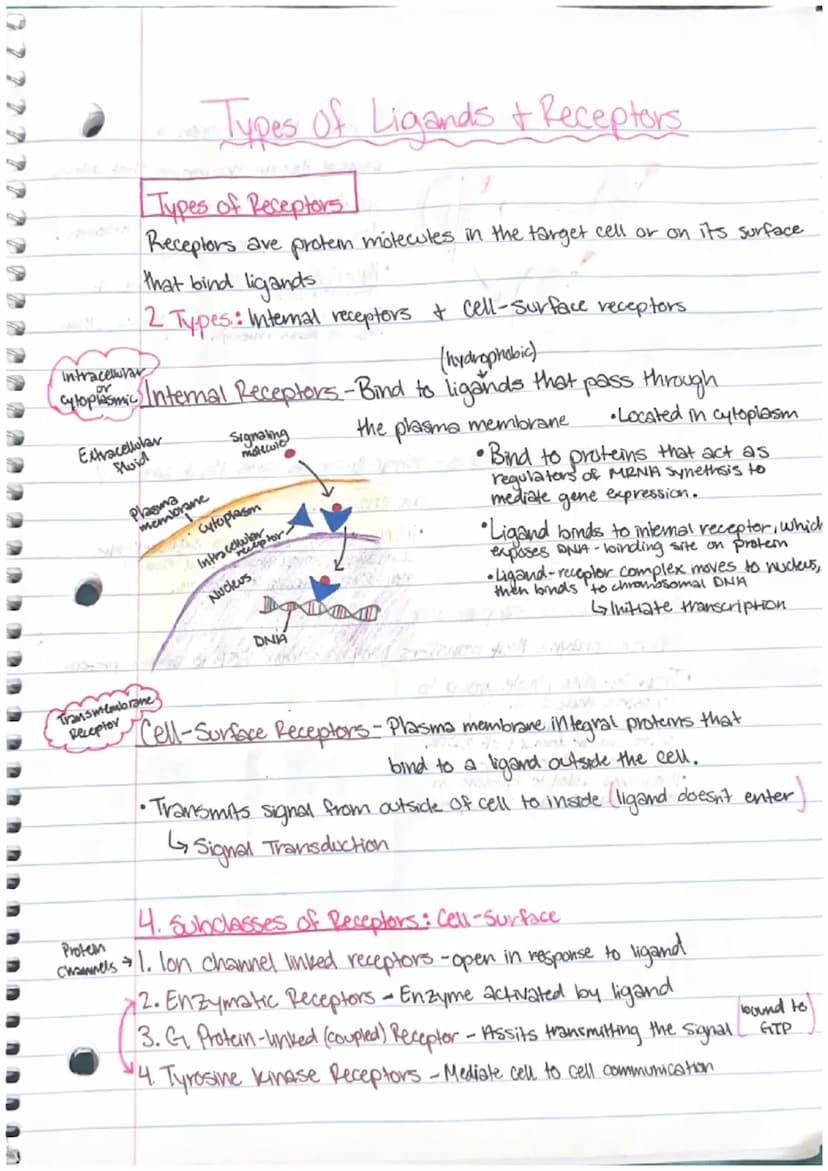 Types Of Ligands + Receptors
Types of Receptors
Receptors are protein molecules in the target cell or on its surface
that bind ligands
2 Types: Internal receptors + cell-surface receptors
(hydrophobic)
Intracellular
or
cytoplasmic
Internal Receptors - Bind to ligands that pass through
the plasma membrane
• Located in cytoplasm
Extracellular
fluid
Signaling
molecule
Plasma
membrane
Cytoplasm
Intracellular
receptor
Nucleus
DNA
• Bind to proteins that act as
regulators of MRNA synethsis to
mediate gene expression.
• Ligand binds to internal receptor, which
exposes DNA-binding site on protein
• Ligand-receptor complex moves to nucleus,
then binds to chromosomal DNA
↳ Initiate transcription
Transmembrane
Receptor
Cell-Surface Receptors - Plasma membrane integral proteins that
bind to a ligand outside the cell.
• Transmits signal from outside of cell to inside (ligand doesn't enter)
↳ Signal Transduction
4. Subclasses of Receptors: Cell-Surface
Protein
Channels →
1. Ion channel linked receptors - open in response to ligand
2. Enzymatic Receptors - Enzyme activated by ligand
3. G Protein-linked (coupled) Receptor - Assits transmitting the signal [bound to
GTP]
4. Tyrosine Kinase Receptors - Mediate cell to cell communication